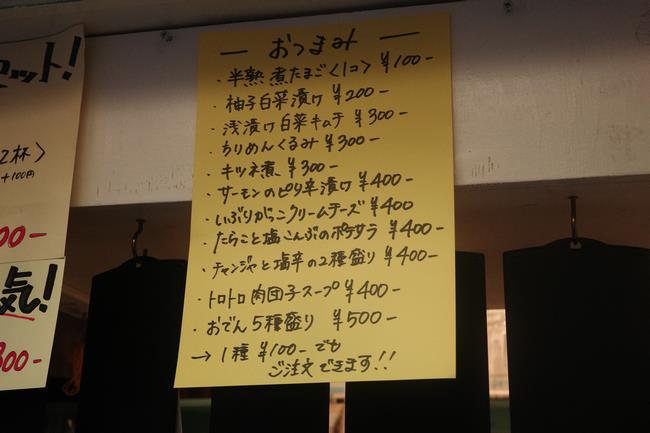 セット!
2杯〉
+100円
00-
気!
300-
— おつまみ —
・半熟煮たまご〈1コ〉¥100-
・柚子白菜漬け ¥200-
・浅漬け白菜キムチ ¥300-
・ちりめんくるみ ¥300-
・キツネ煮 ¥300-
・サーモンのピリ辛漬け ¥400-
・いぶりがっこクリームチーズ ¥400
・たらこと塩こんぶのポテサラ ¥400-
・チャンジャと塩辛の2種盛り ¥400-
・トロトロ肉団子スープ ¥400-
・おでん5種盛り ¥500-
→ 1種 ¥100-でも
ご注文できます!!